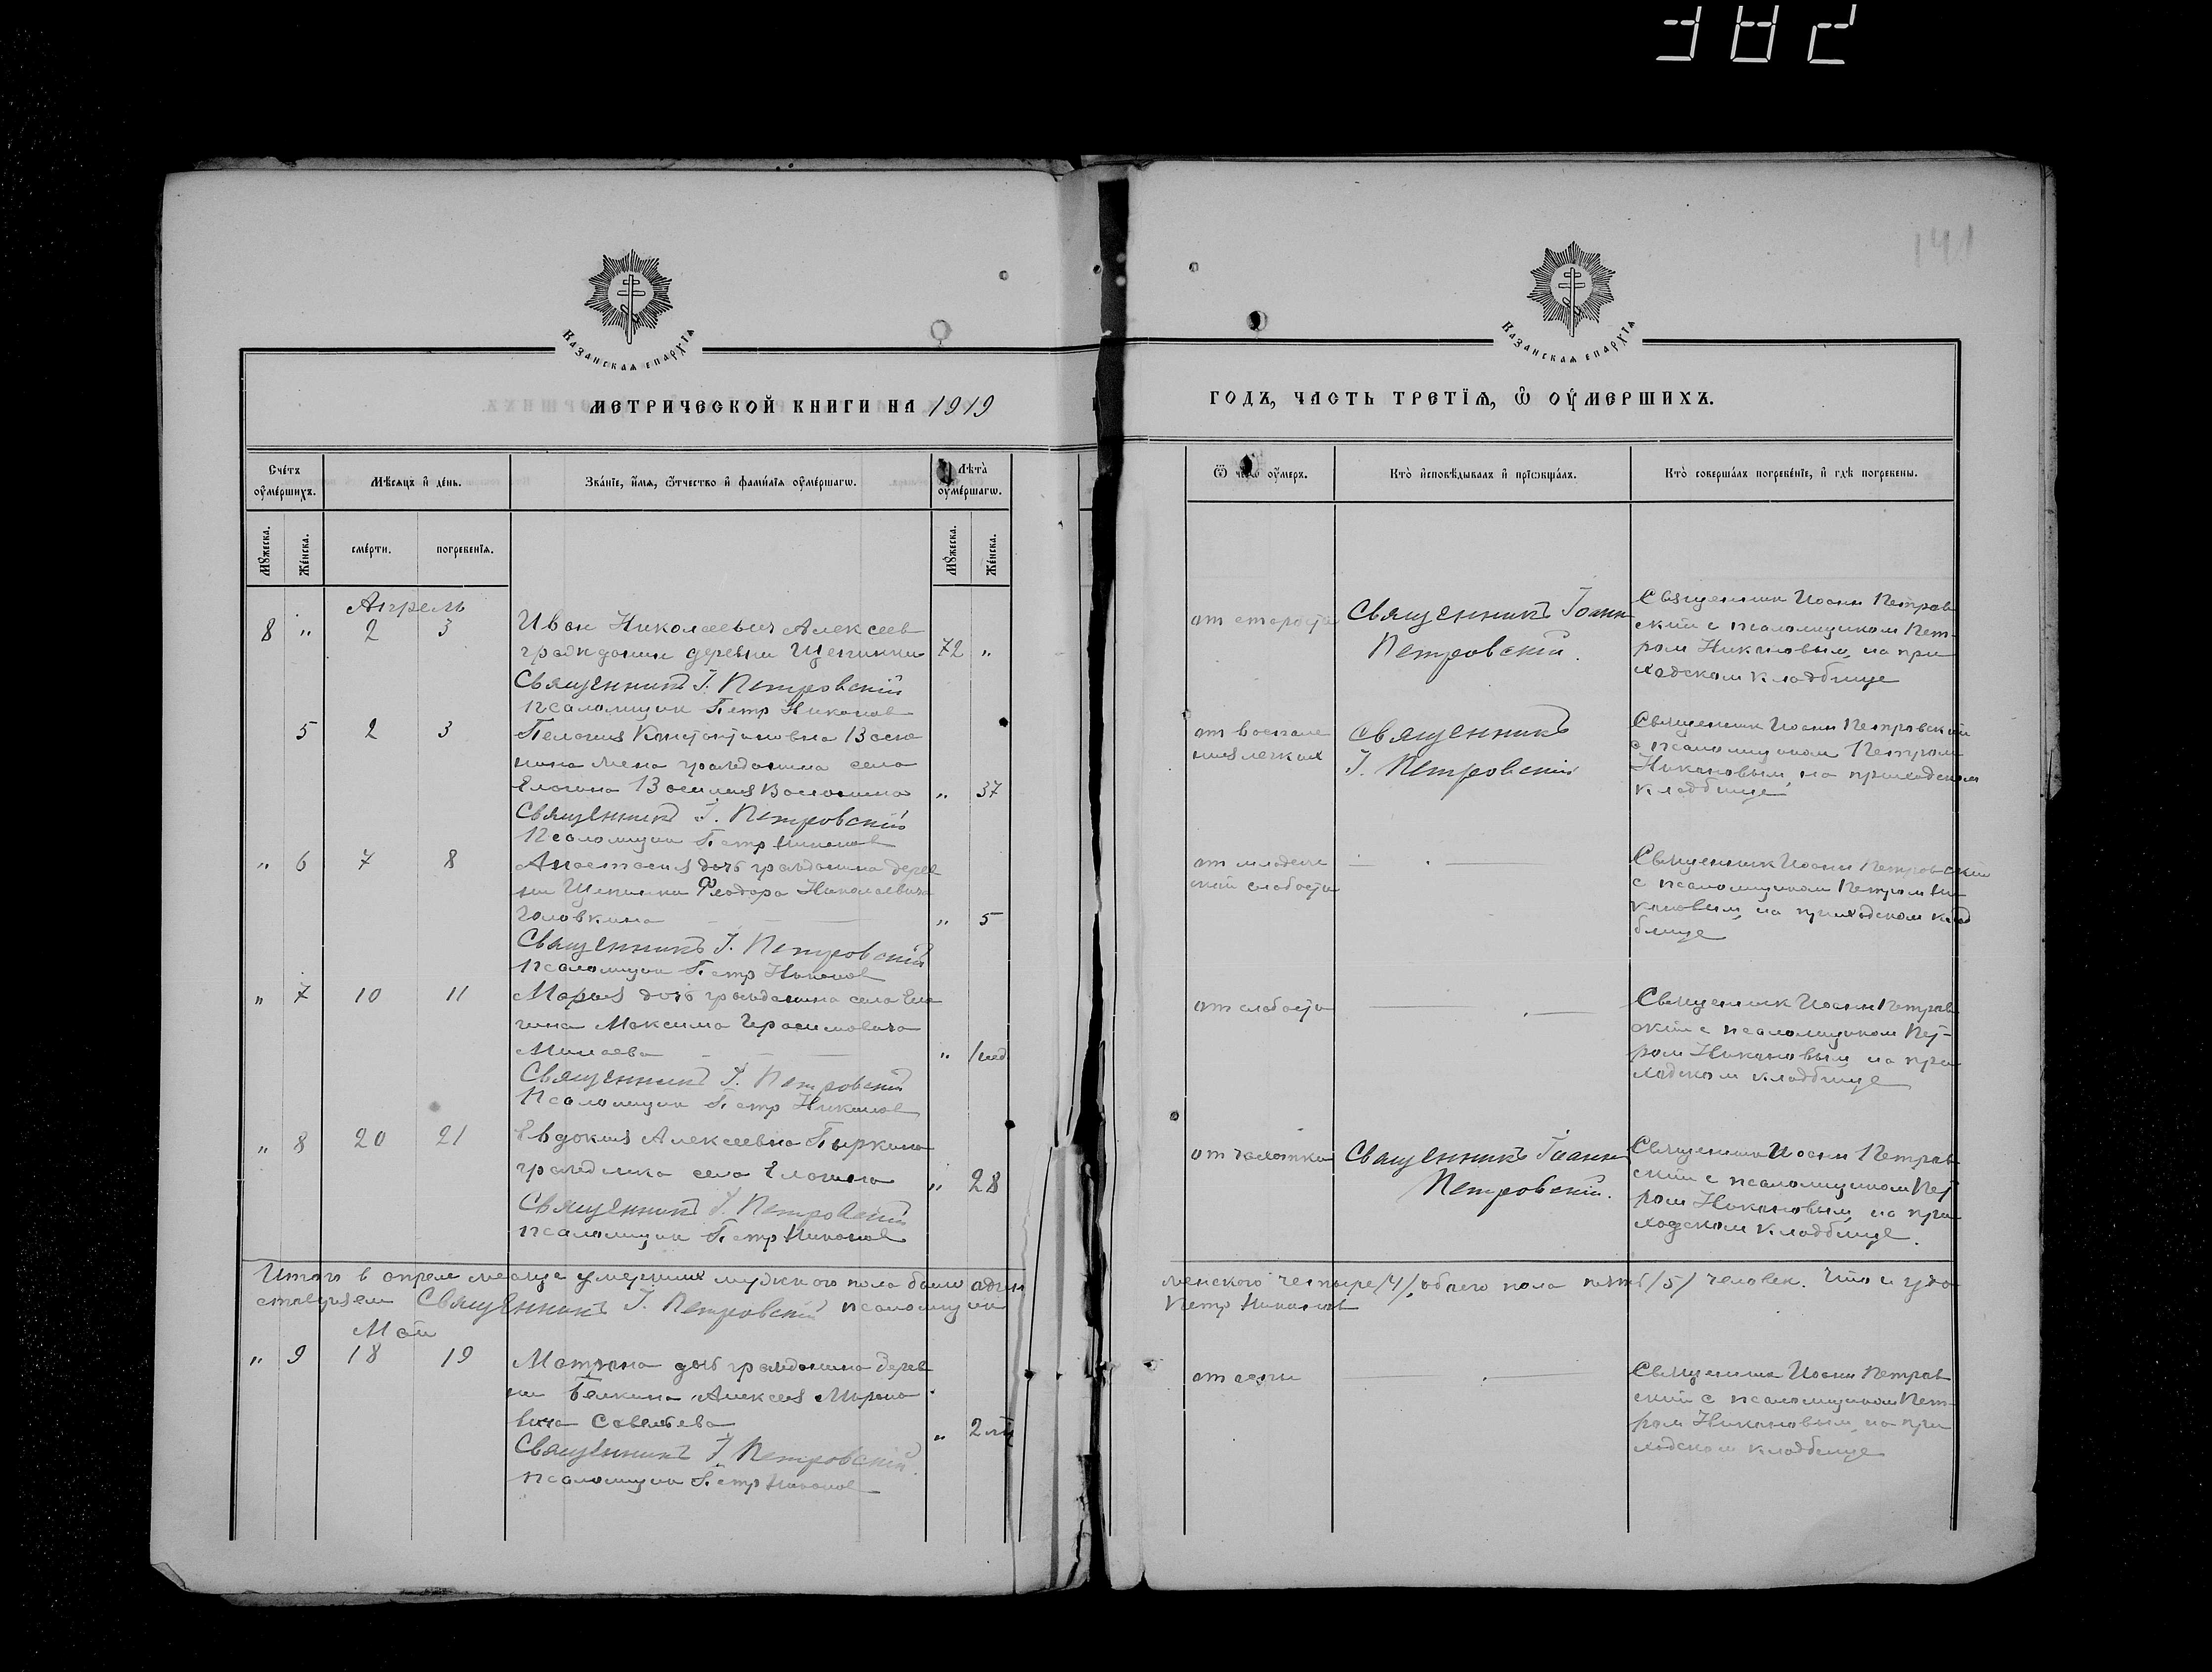 382
141
Казанская епархїѧ
Казанская епархїѧ
МЕТРИЧЕСКОЙ КНИГИ НА 1919
ГОДЪ, ЧАСТЬ ТРЕТЇѦ, Ѡ ОУМЕРШИХЪ.
Счётъ оумершихъ.
Мѣсяцъ и день.
Званїе, имя, отчество и фамилїя оумершагω.
Лѣта оумершагω.
Ѿ чегω оумеръ.
Кто исповѣдывалъ и прїобщалъ.
Кто совершалъ погребенїе, и гдѣ погребены.
Мужеска.
Женска.
смерти.
погребенїя.
Мужеска.
Женска.
Апрель
8 " 2 3
Иван Николаевич Алексеев
гражданин деревни Щепинки 72 "
Священникъ І. Петровскій
псаломщик Петр Никонов
от старости
Священникъ Іоанн
Петровскій.
Священник Иоанн Петров
ский с псаломщиком Пет-
ром Никоновым, на при
ходском кладбище
5 2 3
Пелагия Константиновна
жена гражданина села
Елагина " 37
Священникъ І. Петровскій
Псаломщик Петр Никонов
от воспале
ния легких
Священникъ
І. Петровскій
Священник Иоанн Петровский
с псаломщиком Петром
Никоновым, на приходском
кладбище
" 6 7 8
Анастасия дочь гражданина дерев
ни Щепинки Феодора Николаевича
Головкина " 5
Священникъ І. Петровскій
псаломщик Петр Никонов
от младенче
ской слабости
Священник Иоанн Петровский
с псаломщиком Петром Ни
коновым, на приходском клад
бище
" 7 10 11
Мария дочь гражданина села Ела
гина Максима Герасимовича
Минаева " 1 нед
Священникъ І. Петровскій
Псаломщик Петр Никонов
от слабости
Священник Иоанн Петров
ский с псаломщиком Пет-
ром Никоновым на при
ходском кладбище
" 8 20 21
Евдокия Алексеевна Пыркина
гражданка села Елагина " 28
Священникъ І. Петровскій
псаломщик Петр Никонов
от чахотки
Священникъ Іоанн
Петровскій.
Священник Иоанн Петров
ский с псаломщиком Пет
ром Никоновым, на при
ходском кладбище.
Итого в апреле месяце умерших мужского пола было один
женского четыре /4/, обоего пола пять /5/ человек. Что и удо
стоверяем Священникъ І. Петровскій псаломщик
Петр Никонов
Май
" 9 18 19
Матрона дочь гражданина дерев
ни Белкина Алексея Мироно
вича Савельева " 2
Священникъ І. Петровскій.
псаломщик Петр Никонов
от оспы
Священник Иоанн Петров
ский с псаломщиком Пет-
ром Никоновым, на при
ходском кладбище